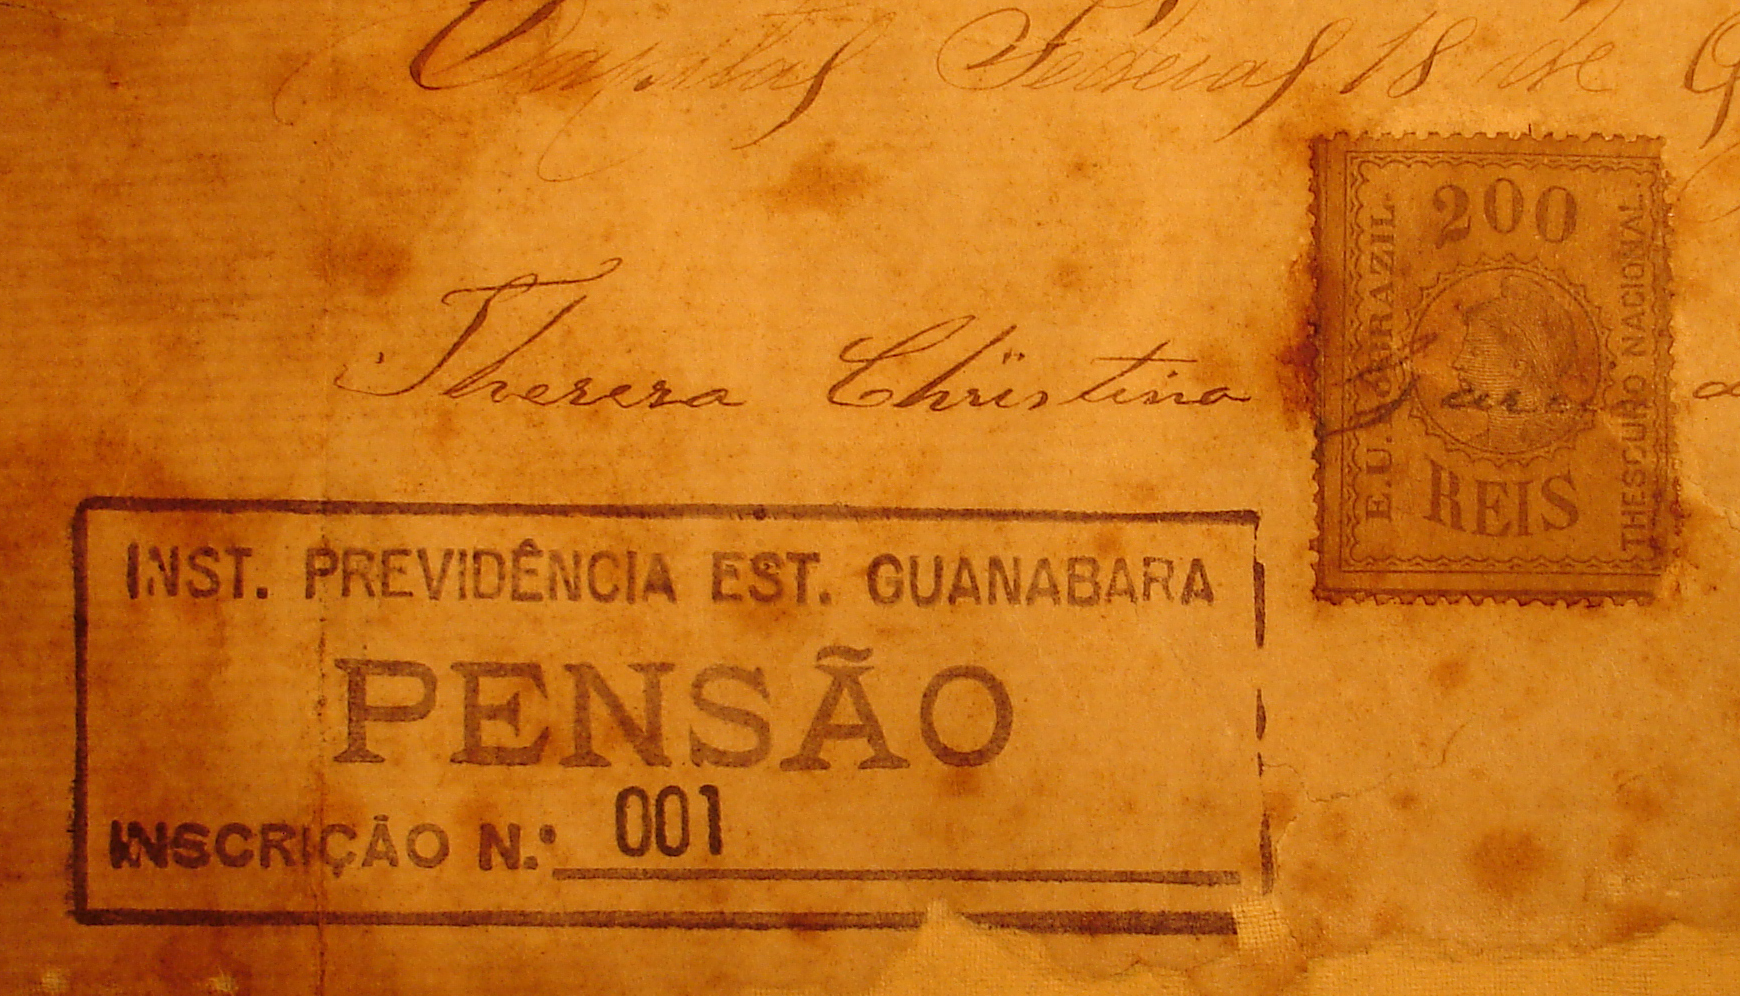 Capital Federal 18 de
200
E.U. do BRAZIL
THESOURO NACIONAL.
REIS
Thereza Christina
INST. PREVIDÊNCIA EST. GUANABARA
PENSÃO
INSCRIÇÃO N.º 001